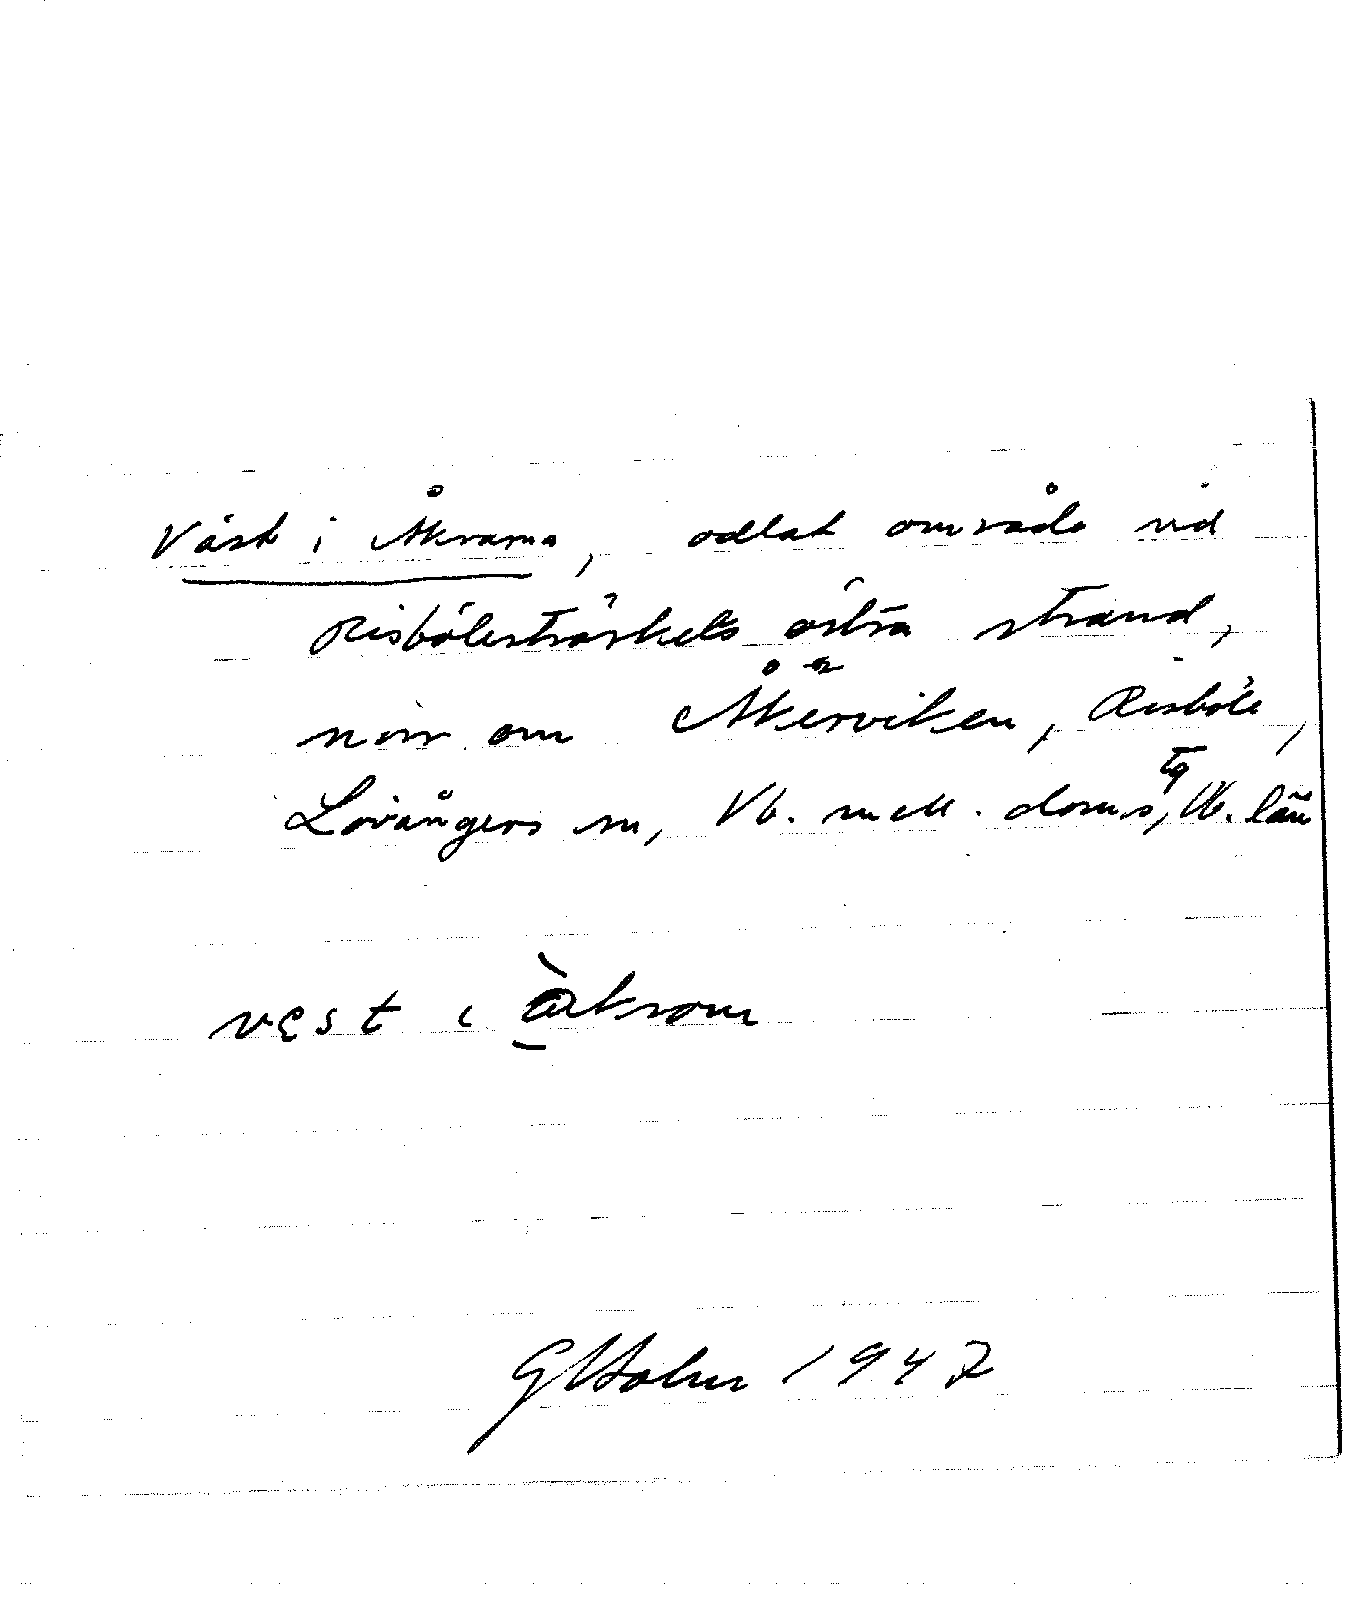 Väst i Åkrarna, odlat område vid
Risböleträskets östra strand,
norr om Åkerviken, Risböle,
Lövångers sn, Vb. mell. doms tg, Vb. län
vest i åkrom
G Holm 1947